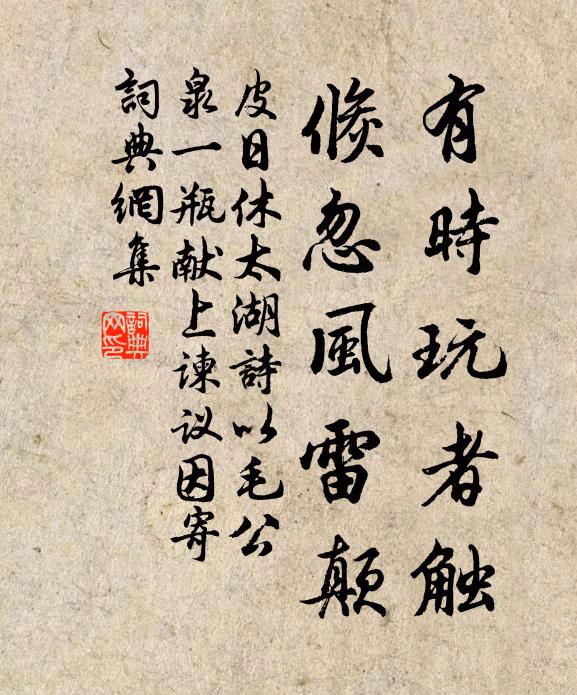 有時玩者触
倏忽風雷颠
皮日休太湖詩以毛公
泉一瓶献上谏议因寄
詞典網集
詞典
网印